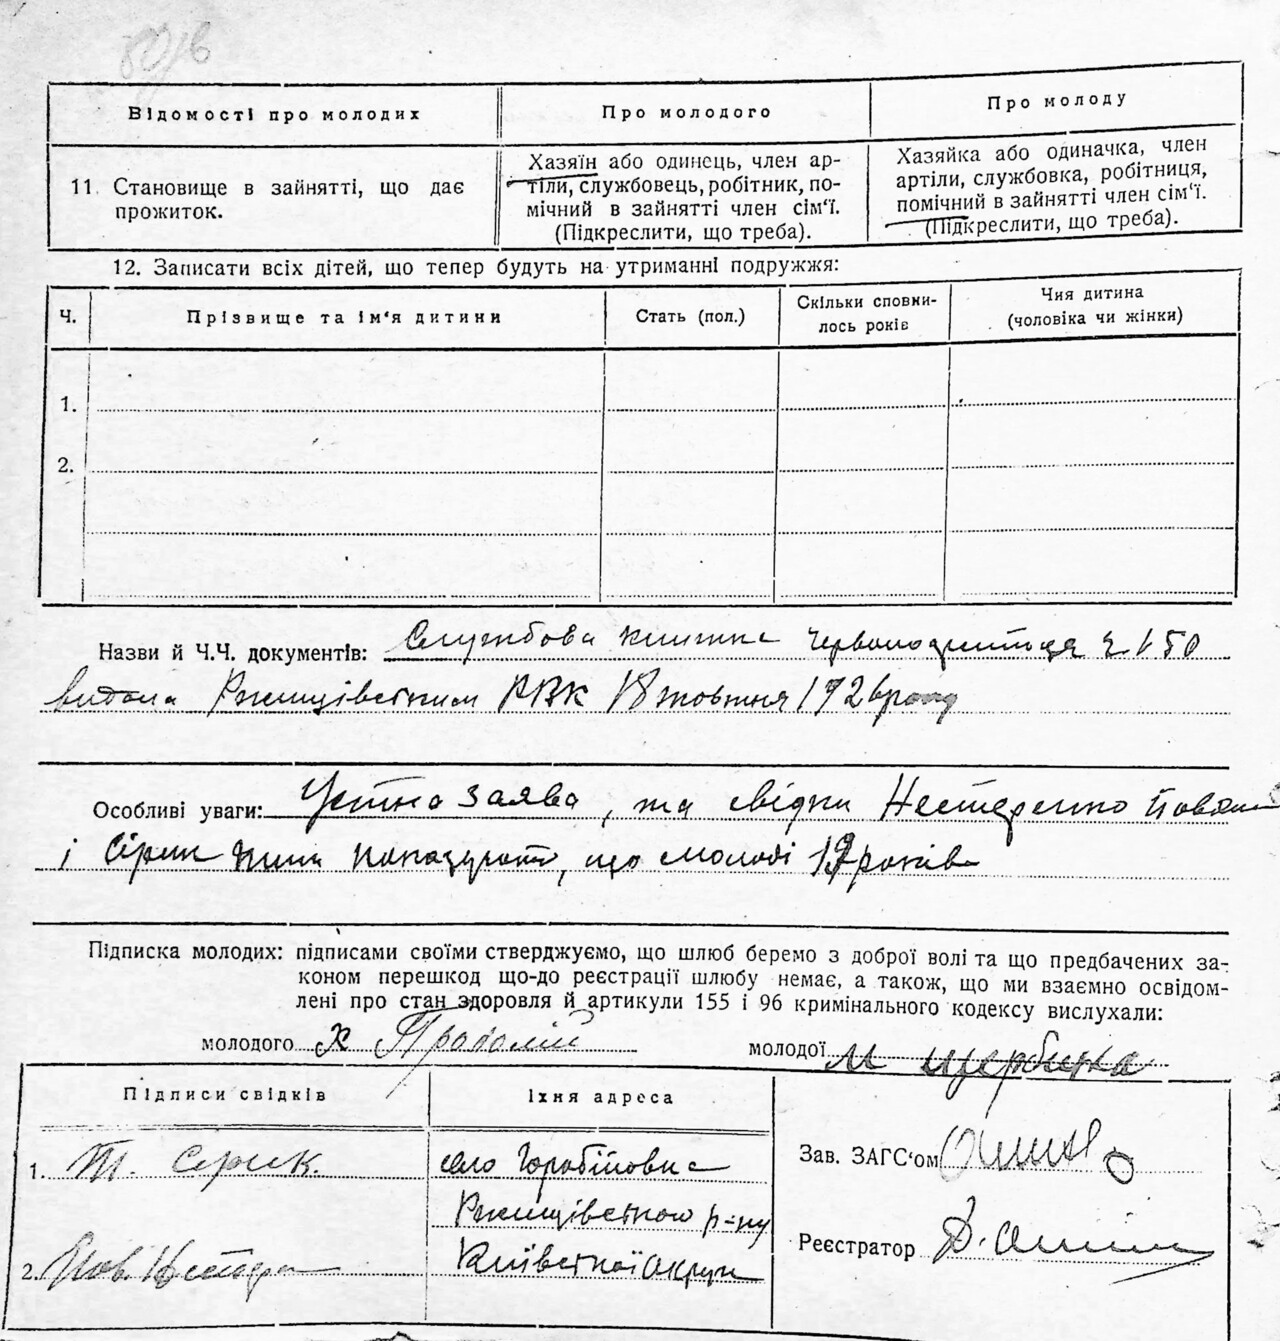 Відомості про молодих
Про молодого
Про молоду
11. Становище в зайнятті, що дає
прожиток.
Хазяїн або одинець, член ар-
тіли, службовець, робітник, по-
мічний в зайнятті член сім'ї.
(Підкреслити, що треба).
Хазяйка або одиначка, член
артіли, службовка, робітниця,
помічний в зайнятті член сім'ї.
(Підкреслити, що треба).
12. Записати всіх дітей, що тепер будуть на утриманні подружжя:
Ч.
Прізвище та ім'я дитини
Стать (пол.)
Скільки сповни-
лось років
Чия дитина
(чоловіка чи жінки)
1.
2.
Назви й Ч.Ч. документів: Службова книжка червоноармійця
видана Ржищівським РВК 18 жовтня 1926 року
Особливі уваги: Устна заява, та свідки Нестеренко
і Сірик показують, що молоді років
Підписка молодих: підписами своїми стверджуємо, що шлюб беремо з доброї волі та що предбачених за-
коном перешкод що-до реєстрації шлюбу немає, а також, що ми взаємно освідом-
лені про стан здоровля й артикули 155 і 96 кримінального кодексу вислухали:
молодого
молодої М Щербина
Підписи свідків
Їхня адреса
1. Т. Сірик.
село Горобіївка
Ржищівського р-ну
2.
Київської округи
Зав. ЗАГС'ом
Реєстратор